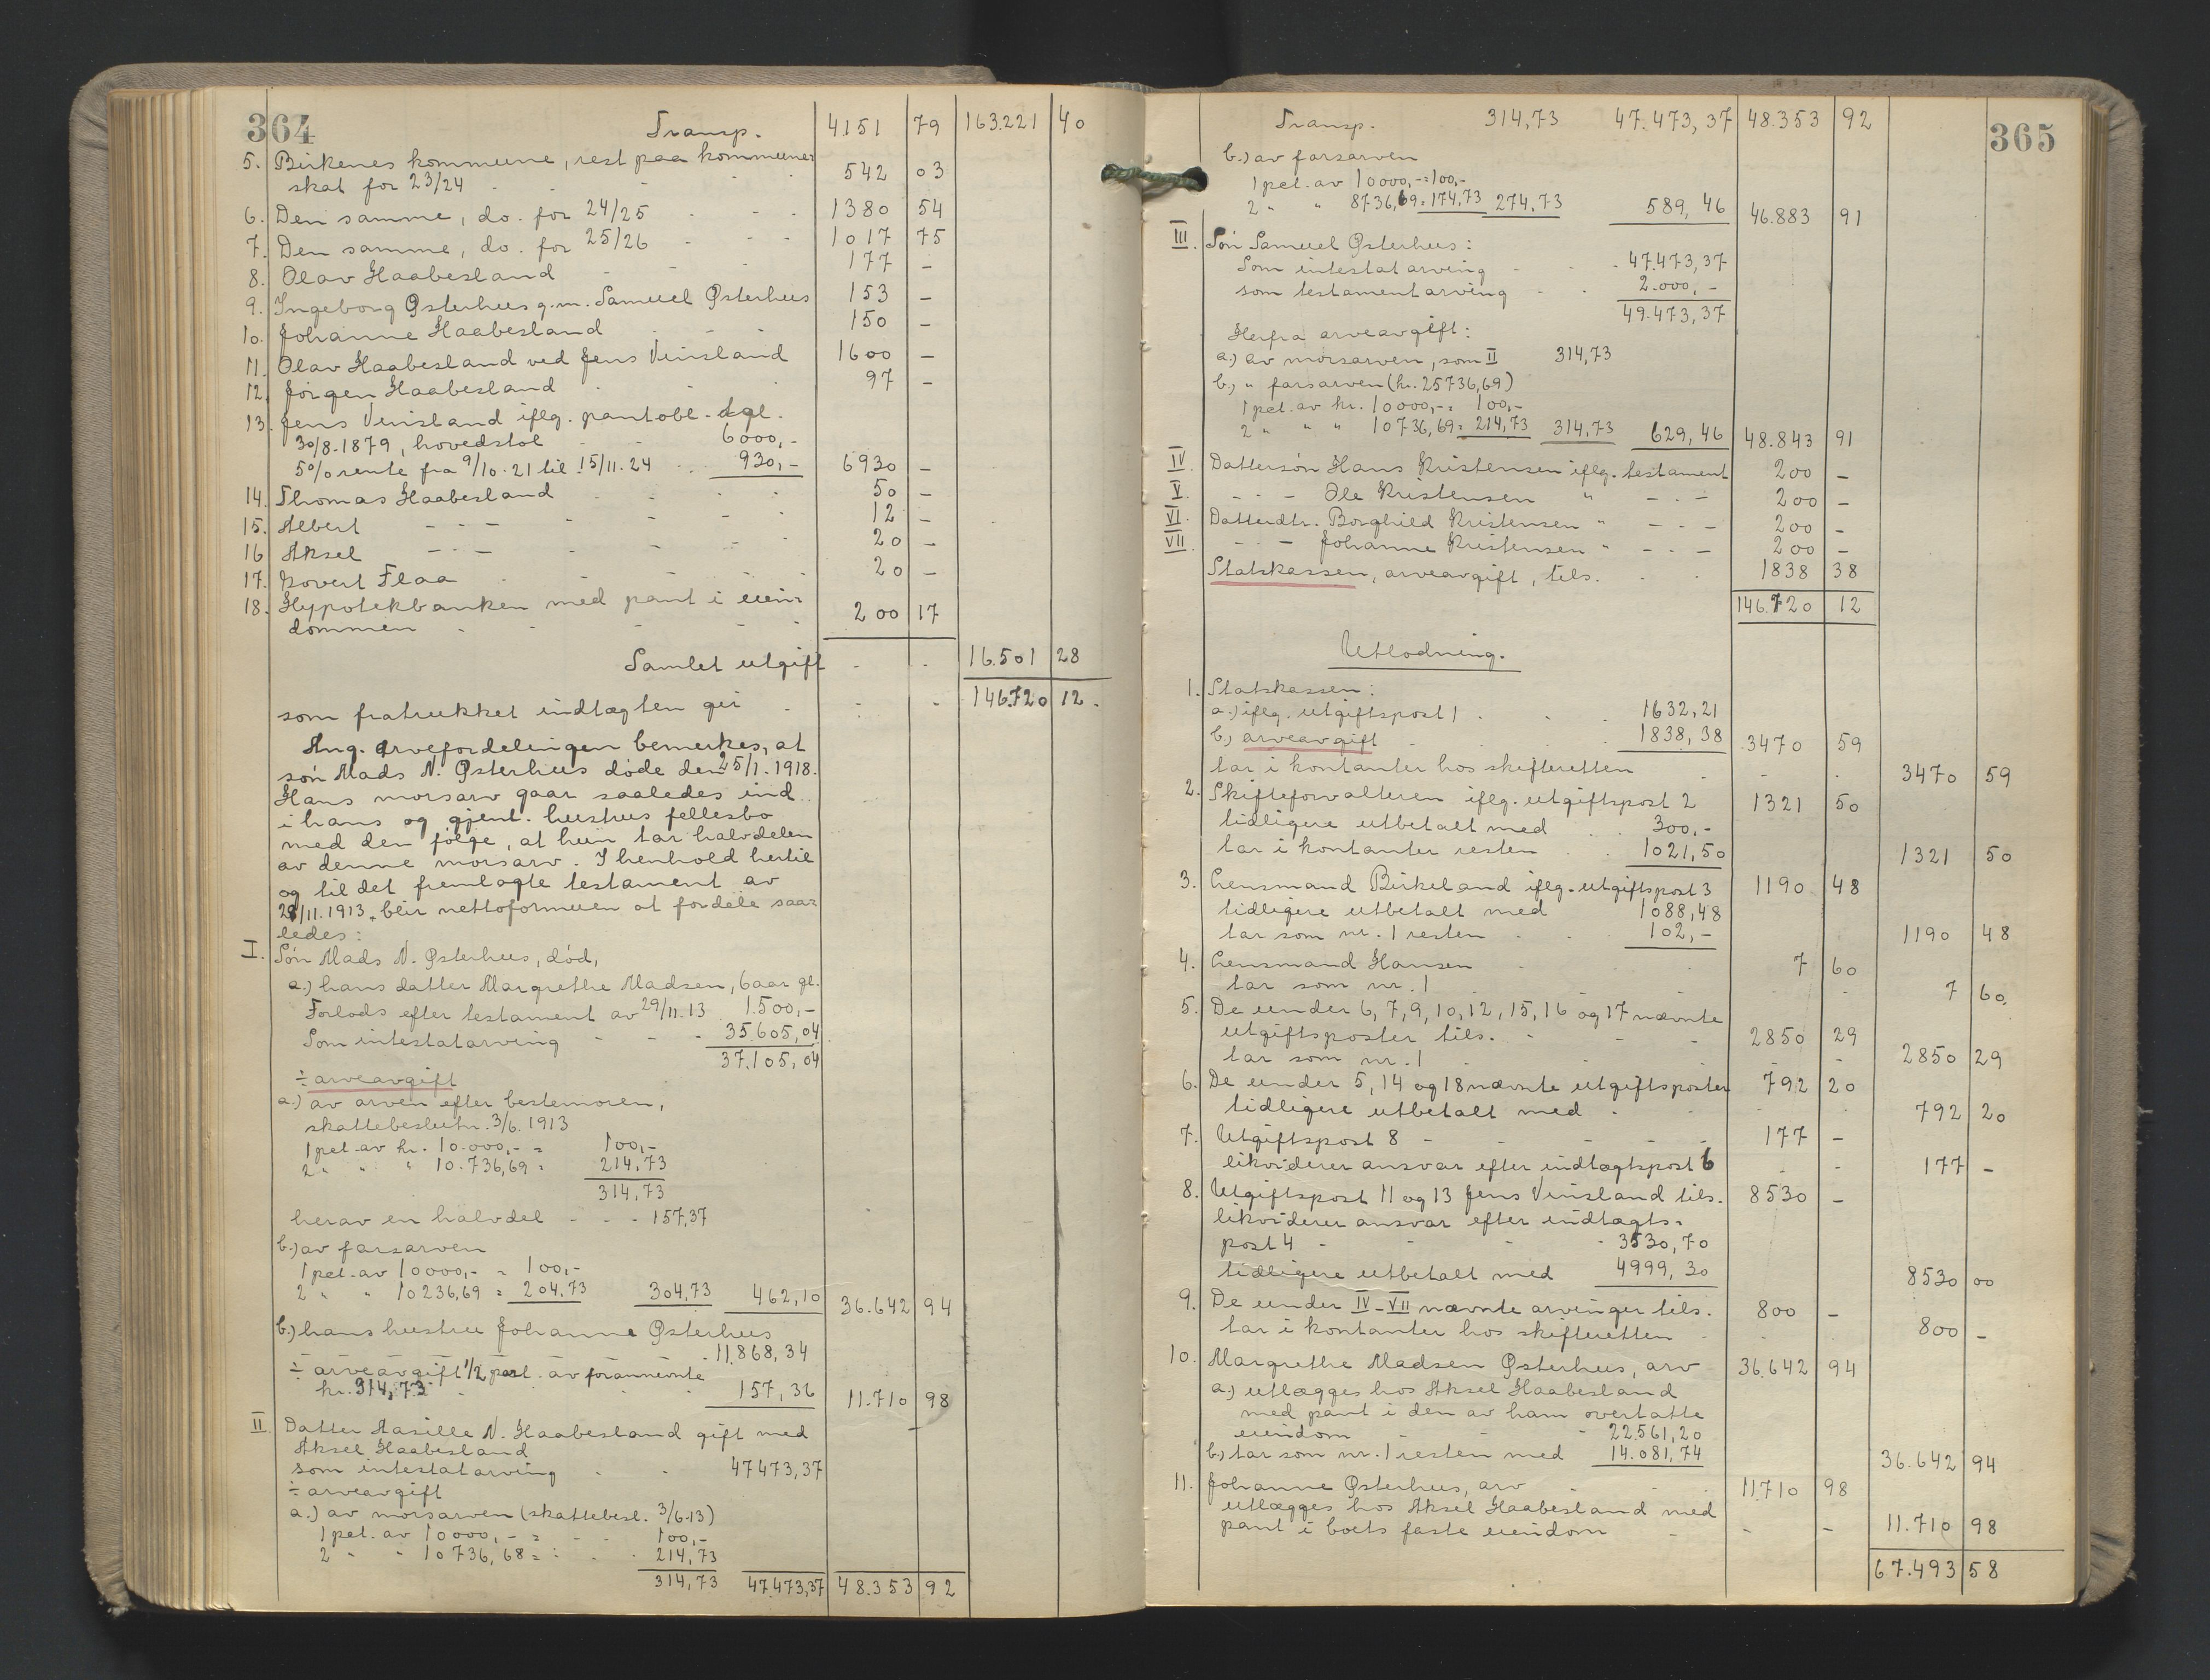 364
Transp. 4151 79 163.221 40
5. Birkenes kommune, rest paa kommune=
skat for 23/24 542 03
6. Den samme, do. for 24/25 1380 54
7. Den samme, do. for 25/26 1017 75
8. Olav Haabesland 177 -
9. Ingeborg Østerhus g.m. Samuel Østerhus 153 -
10. Johanne Haabesland 150 -
11. Olav Haabesland ved Jens Vinsland 1600 -
12. Jørgen Haabesland 97 -
13. Jens Vinsland iflg. pantobl. dgl.
30/8.1879, hovedstol 6000,-
5% rente fra 9/10.21 til 15/11.24 930,- 6930 -
14. Thomas Haabesland 50 -
15. Albert -..- 12 -
16 Aksel -..- 20 -
17. Kovert Flaa 20 -
18. Hypotekbanken med pant i eien=
dommen 200 17
Samlet utgift 16.501 28
som fratrukket indtægten gir 146.720 12.
Ang. arvefordelingen bemerkes, at
søn Mads N. Østerhus døde den 25/1.1918.
Hans morsarv gaar saaledes ind
i hans og gjenl. hustrus fellesbo
med den følge, at hun tar halvdelen
av denne morsarv. I henhold hertil
og til det fremlagte testament av
29/11.1913, blir nettoformuen at fordele saa=
ledes:
I. Søn Mads N. Østerhus, død,
a.) hans datter Margrethe Madsen, 6 aar gl.
Forlods efter testament av 29/11.13 1.500,-
Som intestatarving 35.605,04
37.105,04
÷ arveavgift
a.) av arven efter bestemoren,
skattebeslutn. 3/6.1913
1 pct. av kr. 10.000,- = 100,-
2 " " " 10.736,69 = 214,73
314,73
herav en halvdel 157,37
b.) av farsarven
1 pct. av 10000,- = 100,-
2 " " 10236,69 = 204,73 304,73 462,10 36.642 94
b.) hans hustru Johanne Østerhus
11.868,34
÷ arveavgift 1/2 part. av forannevnte
kr. 314,73 157,36 11.710 98
II. Datter Aasille N. Haabesland gift med
Aksel Haabesland
som intestatarving 47473,37
÷ arveavgift
a.) av morsarven (skattebesl. 3/6.13)
1 pct. av 10000,- = 100,-
2 " " 10736,68 = 214,73
314,73 47473,37 48.353 92
365
Transp. 314,73 47.473,37 48.353 92
b.) av farsarven
1 pct. av 10000,- = 100,-
2 " " 8736,69 = 174,73 274,73 589,46 46.883 91
III. Søn Samuel Østerhus:
Som intestatarving 47.473,37
som testamentarving 2.000,-
49.473,37
Herfra arveavgift:
a.) av morsarven, som II 314,73
b.) " farsarven (kr. 25736,69)
1 pct. av kr. 10000,- = 100,-
2 " " " 10736,69 = 214,73 314,73 629,46 48.843 91
IV Dattersøn Hans Kristensen iflg. testament 200 -
V. -..- Ole Kristensen " -..- 200 -
VI. Datterdtr. Borghild Kristensen " -..- 200 -
VII. -..- Johanne Kristensen " -..- 200 -
Statskassen, arveavgift, tils. 1838 38
146.720 12
Utlodning.
1. Statskassen:
a.) iflg. utgiftspost 1 1632,21
b.) arveavgift 1838,38 3470 59
tar i kontanter hos skifteretten 3470 59
2. Skifteforvalteren iflg. utgiftspost 2 1321 50
tidligere utbetalt med 300,-
tar i kontanter resten 1021,50 1321 50
3. Lensmand Birkeland iflg. utgiftspost 3 1190 48
tidligere utbetalt med 1088,48
tar som nr. 1 resten 102,- 1190 48
4. Lensmand Hansen 7 60
tar som nr. 1 7 60.
5. De under 6, 7, 9, 10, 12, 15, 16 og 17 nævnte
utgiftsposter tils. 2850 29
tar som nr. 1 2850 29
6. De under 5, 14 og 18 nævnte utgiftsposter 792 20
tidligere utbetalt med 792 20
7. Utgiftspost 8 177 -
likviderer ansvar efter indtægtspost 6 177 -
8. Utgiftspost 11 og 13 Jens Vinsland tils. 8530 -
likviderer ansvar efter indtægts=
post 4 3530,70
tidligere utbetalt med 4999,30 8530 00
9. De under IV-VII nævnte arvinger tils. 800 -
tar i kontanter hos skifteretten 800 -
10. Margrethe Madsen Østerhus, arv 36.642 94
a.) utlægges hos Aksel Haabesland
med pant i den av ham overtatte
eiendom 22.561,20
b.) tar som nr. 1 resten med 14.081,74 36.642 94
11. Johanne Østerhus, arv 11710 98
utlægges hos Aksel Haabesland med
pant i boets faste eiendom 11.710 98
67.493 58